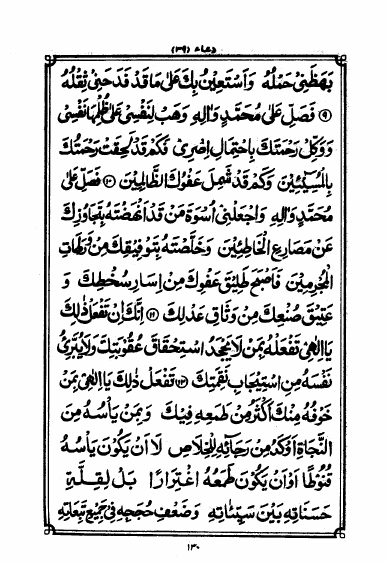 دعاء (٣٩)
بَهَظَنِي حَمْلُهُ وَاَسْتَعِينُ بِكَ عَلٰى مَا قَدْ فَدَحَنِي ثِقْلُهُ
⑨ فَصَلِّ عَلٰى مُحَمَّدٍ وَاٰلِهِ وَهَبْ لِنَفْسِي عَلٰى ظُلْمِهَا نَفْسِي
وَوَكِّلْ رَحْمَتَكَ بِاحْتِمَالِ اِصْرِي فَكَمْ قَدْ لَحِقَتْ رَحْمَتُكَ
بِالْمُسِيئِينَ وَكَمْ قَدْ شَمِلَ عَفْوُكَ الظَّالِمِينَ ⑩ فَصَلِّ عَلٰى
مُحَمَّدٍ وَاٰلِهِ وَاجْعَلْنِي اُسْوَةَ مَنْ قَدْ اَنْهَضْتَهُ بِتَجَاوُزِكَ
عَنْ مَصَارِعِ الْخَاطِئِينَ وَخَلَّصْتَهُ بِتَوْفِيقِكَ مِنْ وَرَطَاتِ
الْمُجْرِمِينَ فَاَصْبَحَ طَلِيقَ عَفْوِكَ مِنْ اِسَارِ سُخْطِكَ وَ
عَتِيقَ صُنْعِكَ مِنْ وَثَاقِ عَدْلِكَ ⑪ اِنَّكَ اِنْ تَفْعَلْ ذٰلِكَ
يَا اِلٰهِي تَفْعَلْهُ بِمَنْ لَا يَجْحَدُ اسْتِحْقَاقَ عُقُوبَتِكَ وَلَا يُبَرِّئُ
نَفْسَهُ مِنِ اسْتِيجَابِ نَقِمَتِكَ ⑫ تَفْعَلْ ذٰلِكَ يَا اِلٰهِي بِمَنْ
خَوْفُهُ مِنْكَ اَكْثَرُ مِنْ طَمَعِهِ فِيكَ وَبِمَنْ يَأْسُهُ مِنَ
النَّجَاةِ اَوْكَدُ مِنْ رَجَائِهِ لِلْخَلَاصِ لَا اَنْ يَكُونَ يَأْسُهُ
قُنُوطًا اَوْ اَنْ يَكُونَ طَمَعُهُ اغْتِرَارًا بَلْ لِقِلَّةِ
حَسَنَاتِهِ بَيْنَ سَيِّئَاتِهِ وَضَعْفِ حُجَجِهِ فِي جَمِيعِ تَبِعَاتِهِ
١٣٠